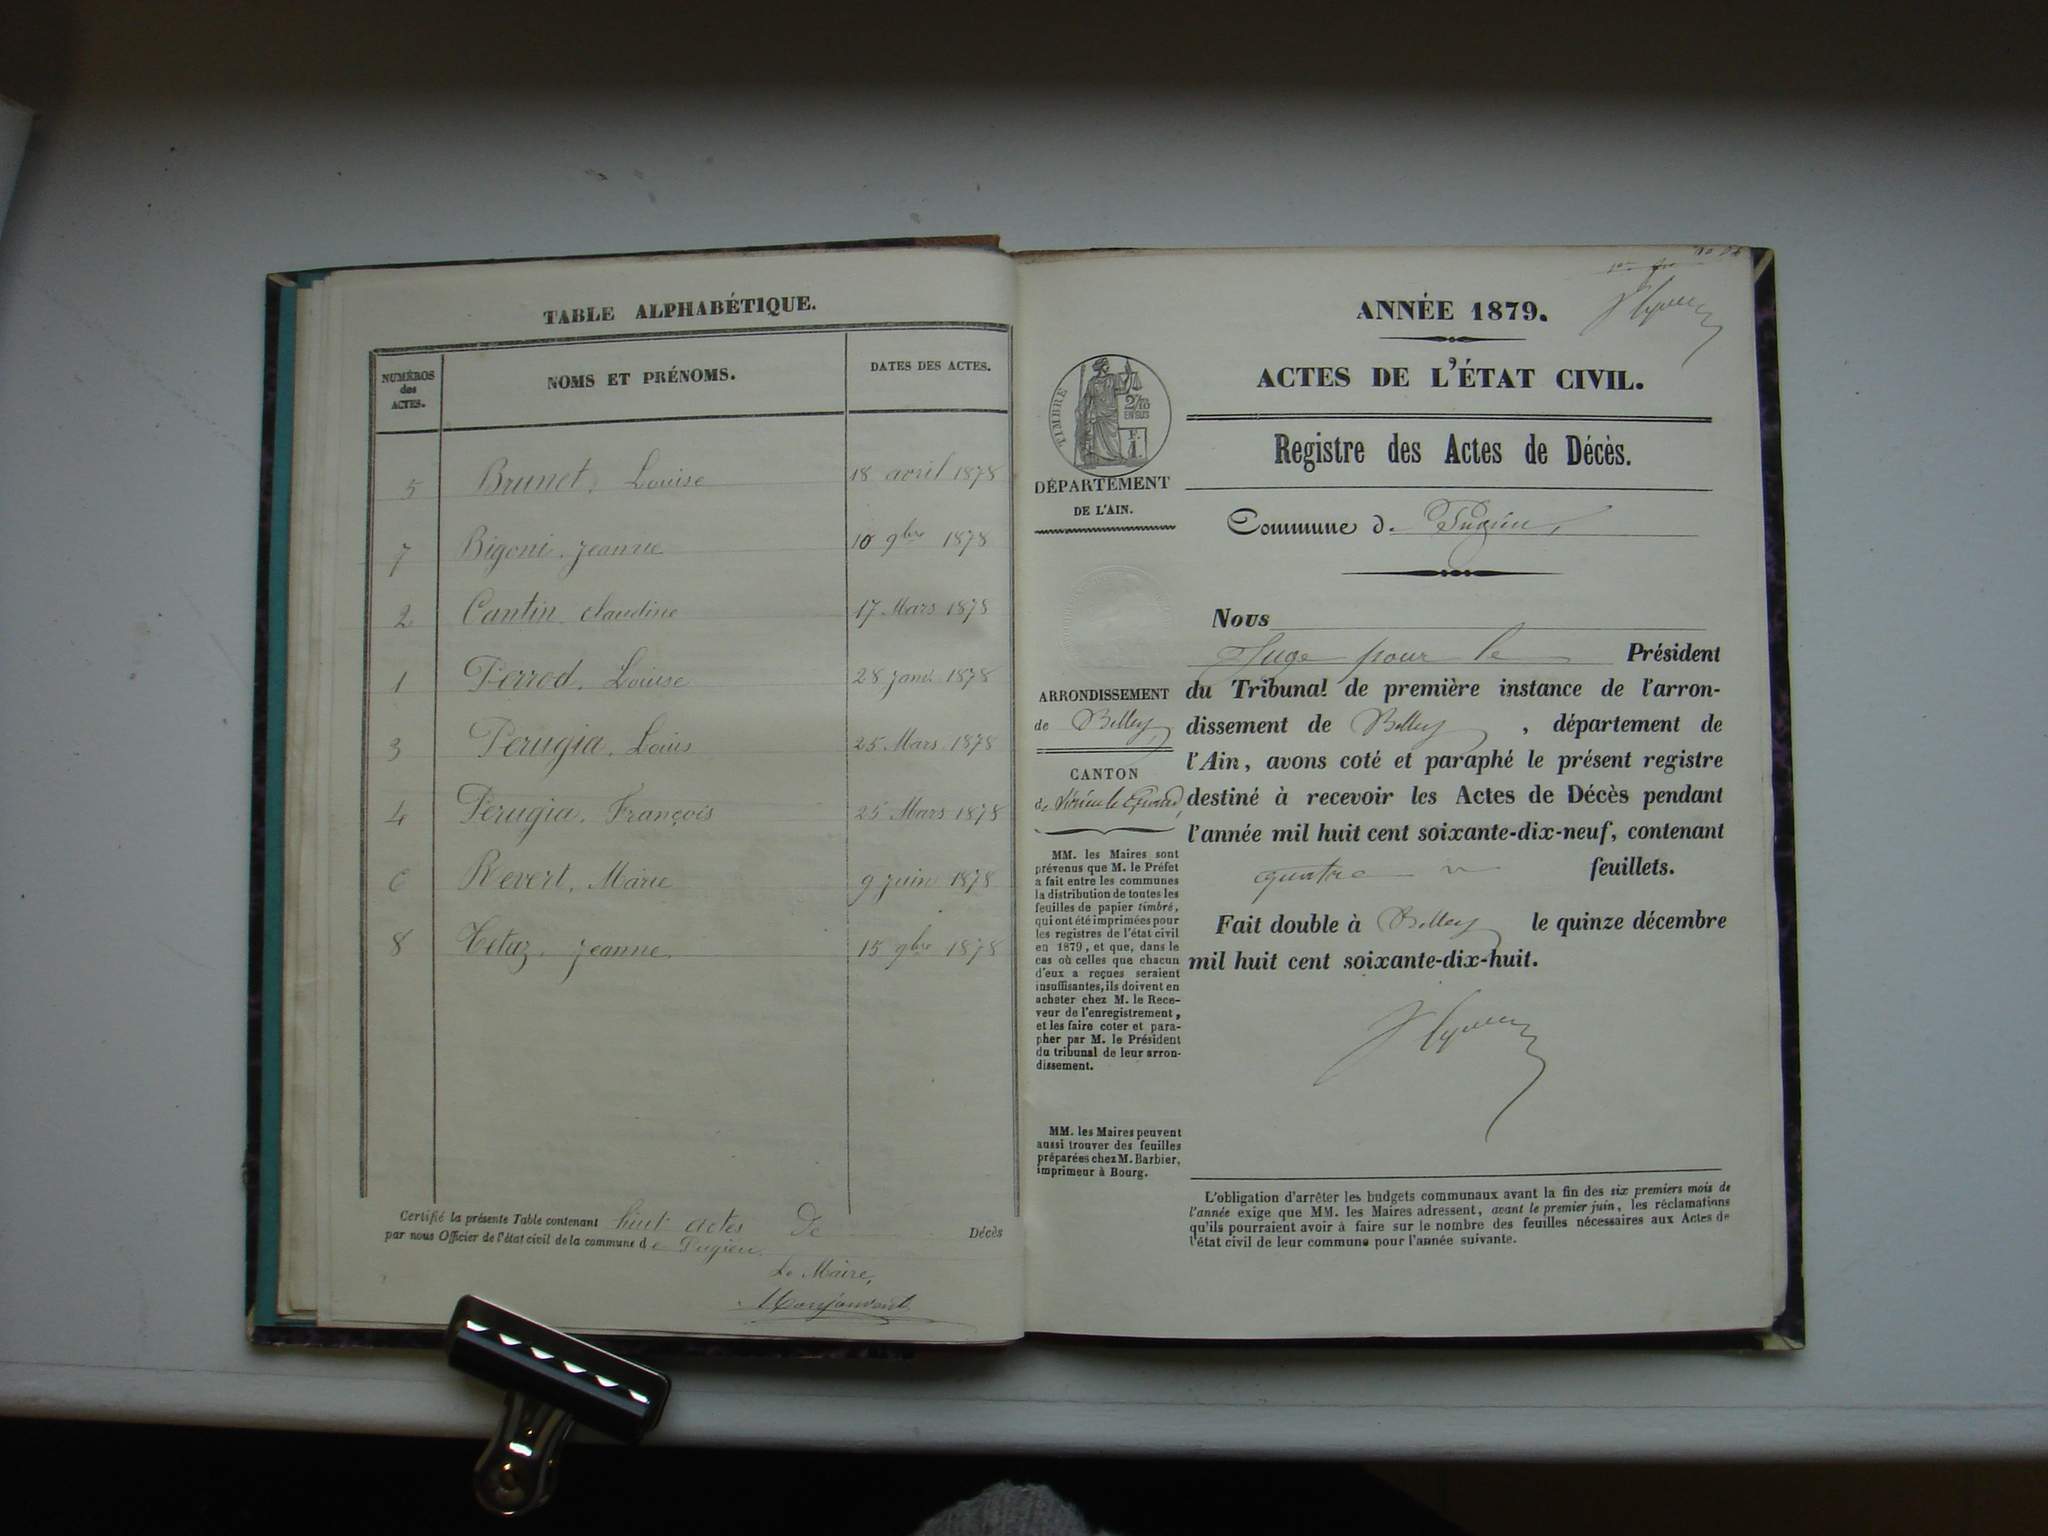 TABLE ALPHABÉTIQUE.
NUMÉROS des ACTES. NOMS ET PRÉNOMS. DATES DES ACTES.
5 Brunet, Louise 18 avril 1878
7 Bigoni, Jeanne 10 9bre 1878
2 Cantin, Claudine 17 Mars 1878
1 Perrod, Louise 28 janv. 1878
3 Perugia, Louis 25 Mars 1878
4 Perugia, François 25 Mars 1878
6 Revert, Marie 9 juin 1878
8 Tétaz, Jeanne 15 9bre 1878
Certifié la présente Table contenant huit actes De Décès
par nous Officier de l'état civil de la commune de Pugieu.
Le Maire,
ANNÉE 1879.
ACTES DE L'ÉTAT CIVIL.
Registre des Actes de Décès.
Commune de Pugieu
TIMBRE
2/10
EN SUS
F.
1.
DÉPARTEMENT
DE L'AIN.
ARRONDISSEMENT
de Belley
CANTON
de
MM. les Maires sont
prévenus que M. le Préfet
a fait entre les communes
la distribution de toutes les
feuilles de papier timbré,
qui ont été imprimées pour
les registres de l'état civil
en 1879, et que, dans le
cas où celles que chacun
d'eux a reçues seraient
insuffisantes, ils doivent en
acheter chez M. le Rece-
veur de l'enregistrement,
et les faire coter et para-
pher par M. le Président
du tribunal de leur arron-
dissement.
MM. les Maires peuvent
aussi trouver des feuilles
préparées chez M. Barbier,
imprimeur à Bourg.
Nous
Juge pour le Président
du Tribunal de première instance de l'arron-
dissement de Belley, département de
l'Ain, avons coté et paraphé le présent registre
destiné à recevoir les Actes de Décès pendant
l'année mil huit cent soixante-dix-neuf, contenant
quatre feuillets.
Fait double à Belley le quinze décembre
mil huit cent soixante-dix-huit.
L'obligation d'arrêter les budgets communaux avant la fin des six premiers mois de
l'année exige que MM. les Maires adressent, avant le premier juin, les réclamations
qu'ils pourraient avoir à faire sur le nombre des feuilles nécessaires aux Actes de
l'état civil de leur commune pour l'année suivante.